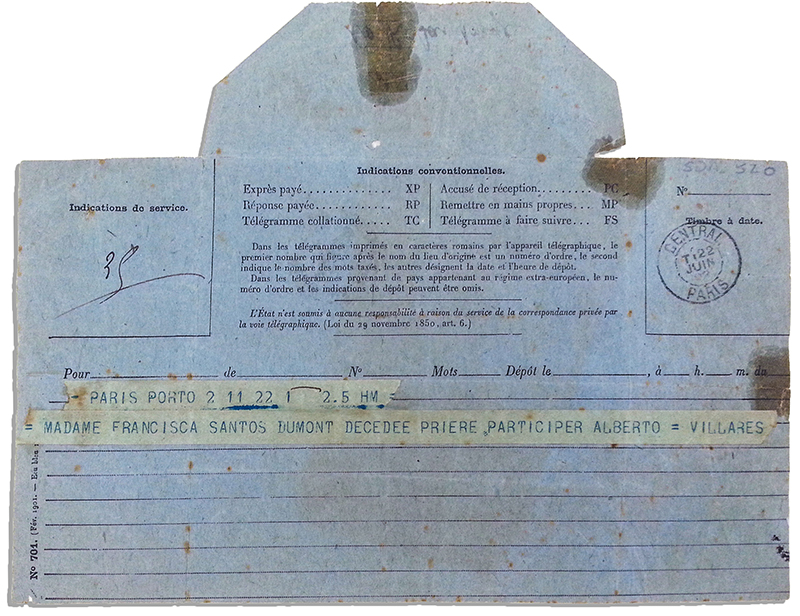 Indications de service.
25
Indications conventionnelles.
Exprès payé . . . . . . . . . . . . . . XP
Réponse payée . . . . . . . . . . . . RP
Télégramme collationné. . . . . TC
Accusé de réception. . . . . . . . PC
Remettre en mains propres. . . MP
Télégramme à faire suivre. . . FS
Dans les télégrammes imprimés en caractères romains par l'appareil télégraphique, le
premier nombre qui figure après le nom du lieu d'origine est un numéro d'ordre, le second
indique le nombre des mots taxés, les autres désignent la date et l'heure de dépôt.
Dans les télégrammes provenant de pays appartenant au régime extra-européen, le nu-
méro d'ordre et les indications de dépôt peuvent être omis.
L'État n'est soumis à aucune responsabilité à raison du service de la correspondance privée par
la voie télégraphique. (Loi du 29 novembre 1850, art. 6.)
SDM 520
N°
Timbre à date.
CENTRAL
22
JUIN
PARIS
Pour de N° Mots Dépôt le , à h. m. du
- PARIS PORTO 2 11 22 1 2.5 HM =
= MADAME FRANCISCA SANTOS DUMONT DECEDEE PRIERE PARTICIPER ALBERTO = VILLARES
N° 701. (Fév. 1901. —